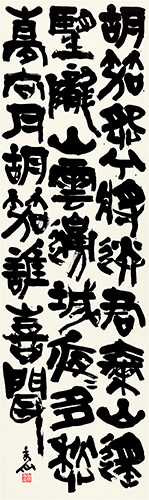 胡笳怨兮將送君秦山遙
望隴山雲邊城夜多愁
夢向月胡笳誰喜聞